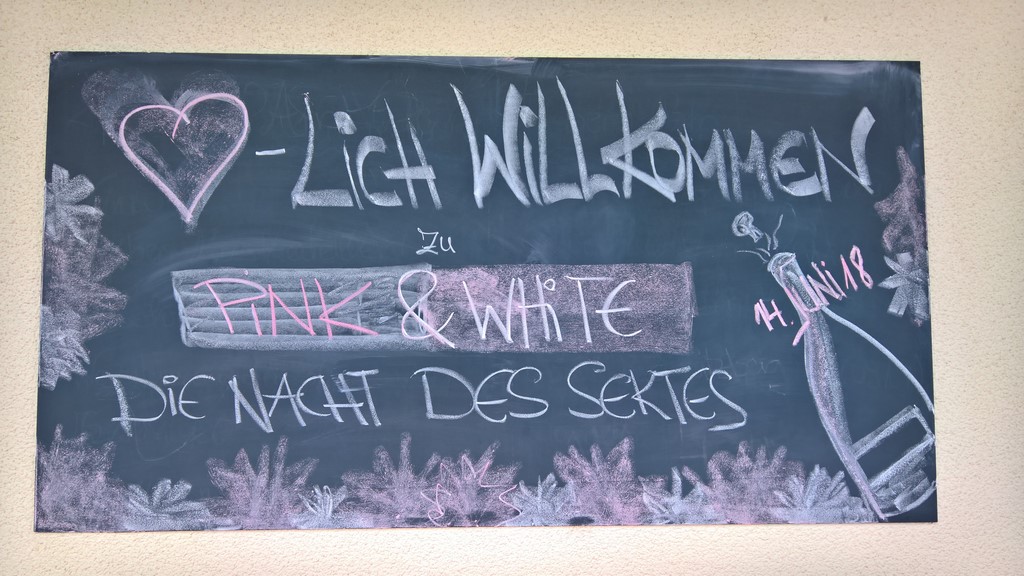 -LICH WILLKOMMEN
ZU
PINK & WHITE
14. JUNI 18
DIE NACHT DES SEKTES